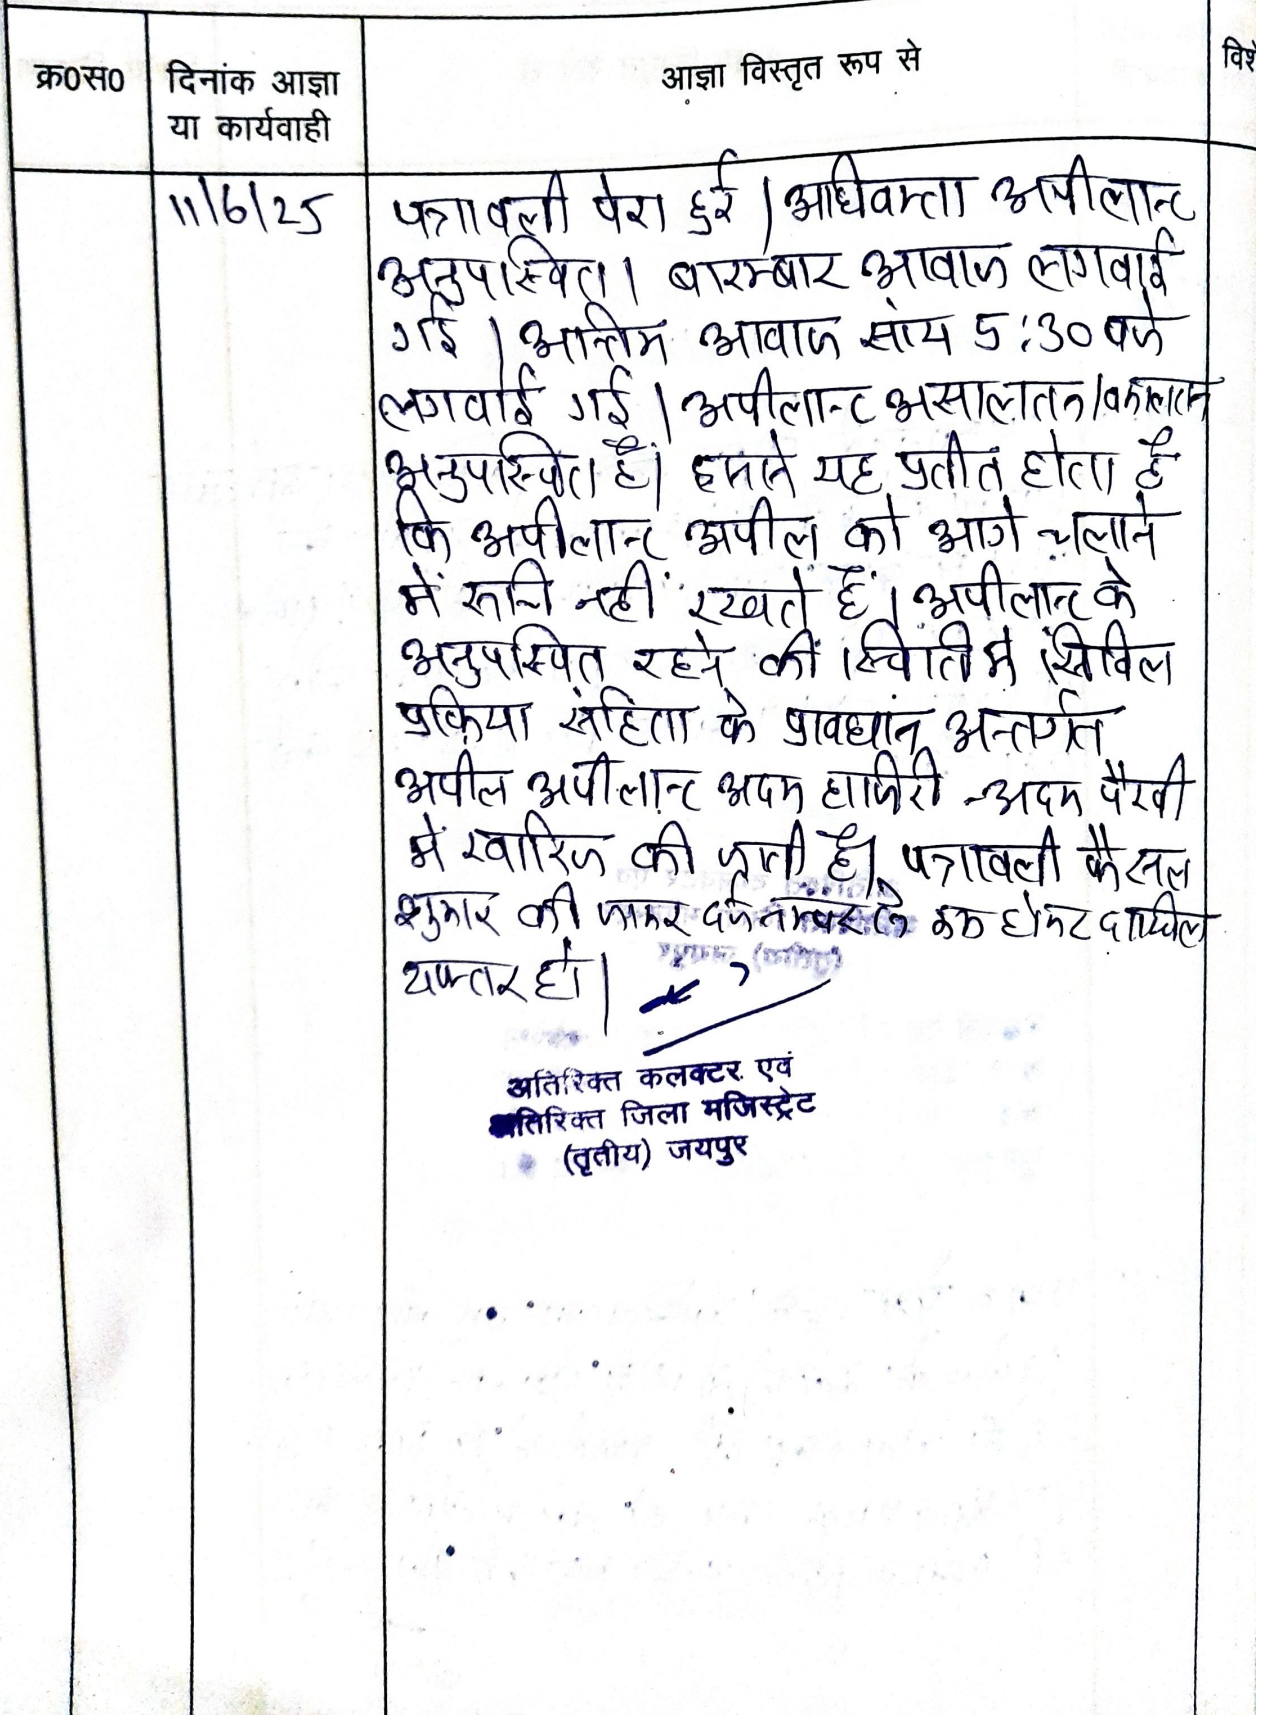 क्र०स०
दिनांक आज्ञा
या कार्यवाही
आज्ञा विस्तृत रूप से
11/6/25
पत्रावली पेश हुई। अधिवक्ता अपीलान्ट
अनुपस्थित। बारम्बार आवाज लगवाई
गई। अन्तिम आवाज सांय 5:30 बजे
लगवाई गई। अपीलान्ट असालतन/वकालतन
अनुपस्थित है। इससे यह प्रतीत होता है
कि अपीलान्ट अपील को आगे चलाने
में रूचि नहीं रखते हैं। अपीलान्ट के
अनुपस्थित रहने की स्थिति में सिविल
प्रक्रिया संहिता के प्रावधान अन्तर्गत
अपील अपीलान्ट अदम हाजिरी अदम पैरवी
में खारिज की जाती है। पत्रावली फैसल
शुमार की जाकर दर्ज नम्बर से कम होकर दाखिल
दफ्तर हो।
अतिरिक्त कलक्टर एवं
अतिरिक्त जिला मजिस्ट्रेट
(तृतीय) जयपुर